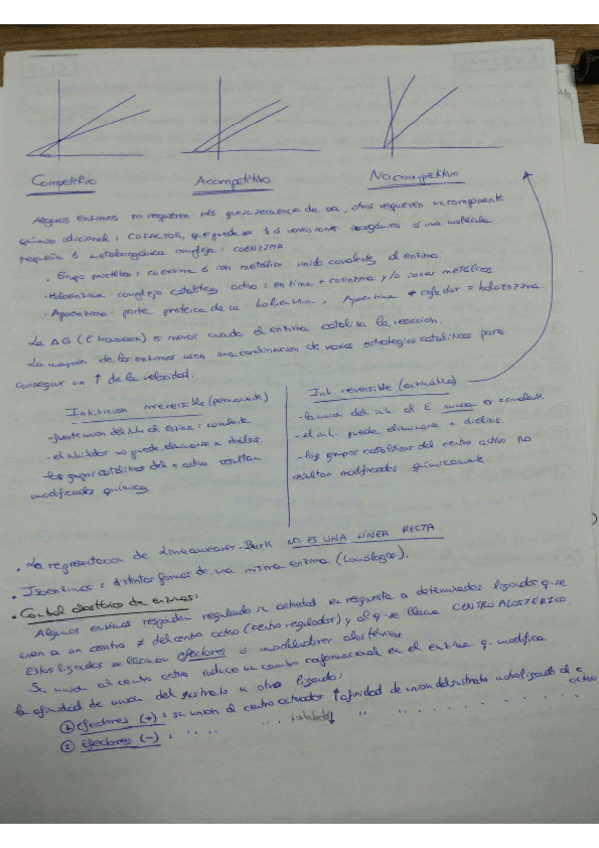 Competitivo
Acompetitivo
No competitivo
Algunos enzimas no requieren más que su secuencia de aa, otros requieren un componente
químico adicional: COFACTOR, que puede ser 1 ó varios iones inorgánicos ó una molécula
pequeña ó metaloorgánica compleja: COENZIMA.
· Grupo prostético: coenzima ó ión metálico unido covalente al enzima.
· Holoenzima: complejo catalítico activo: enzima + coenzima y/o iones metálicos.
· Apoenzima: parte proteica de la holoenzima. Apoenzima + cofactor = holoenzima.
La ΔG (E transición) es menor cuando el enzima cataliza la reacción.
La mayoría de los enzimas usan una combinación de varias estrategias catalíticas para
conseguir un ↑ de la velocidad.
Inhibición irreversible (permanente)
- fuerte unión del inh. al enzima: covalente
- el inhibidor no puede eliminarse x diálisis.
- los grupos catalíticos del c activo resultan
modificados química
Inh reversible (enzimática)
- la unión del inh. al E nunca es covalente
- el inh. puede eliminarse x diálisis.
- los grupos catalíticos del centro activo no
resultan modificados químicamente.
· La representación de Lineweaver-Burk NO ES UNA LÍNEA RECTA
· Isoenzimas: distintas formas de una misma enzima (homólogas).
· Control alostérico de enzimas:
Algunos enzimas responden regulando su actividad en respuesta a determinados ligandos q. se
unen a un centro ≠ del centro activo (centro regulador) y al q. se llama CENTRO ALOSTÉRICO.
Estos ligandos se llaman efectores ó moduladores alostéricos
Su unión al centro activo induce un cambio conformacional en el enzima q. modifica
la afinidad de unión del sustrato u otro ligando:
① efectores (+): su unión al centro activador ↑ afinidad de unión del sustrato u otro ligando al c activo
② Efectores (-): " " " " ↓ " " " " " "